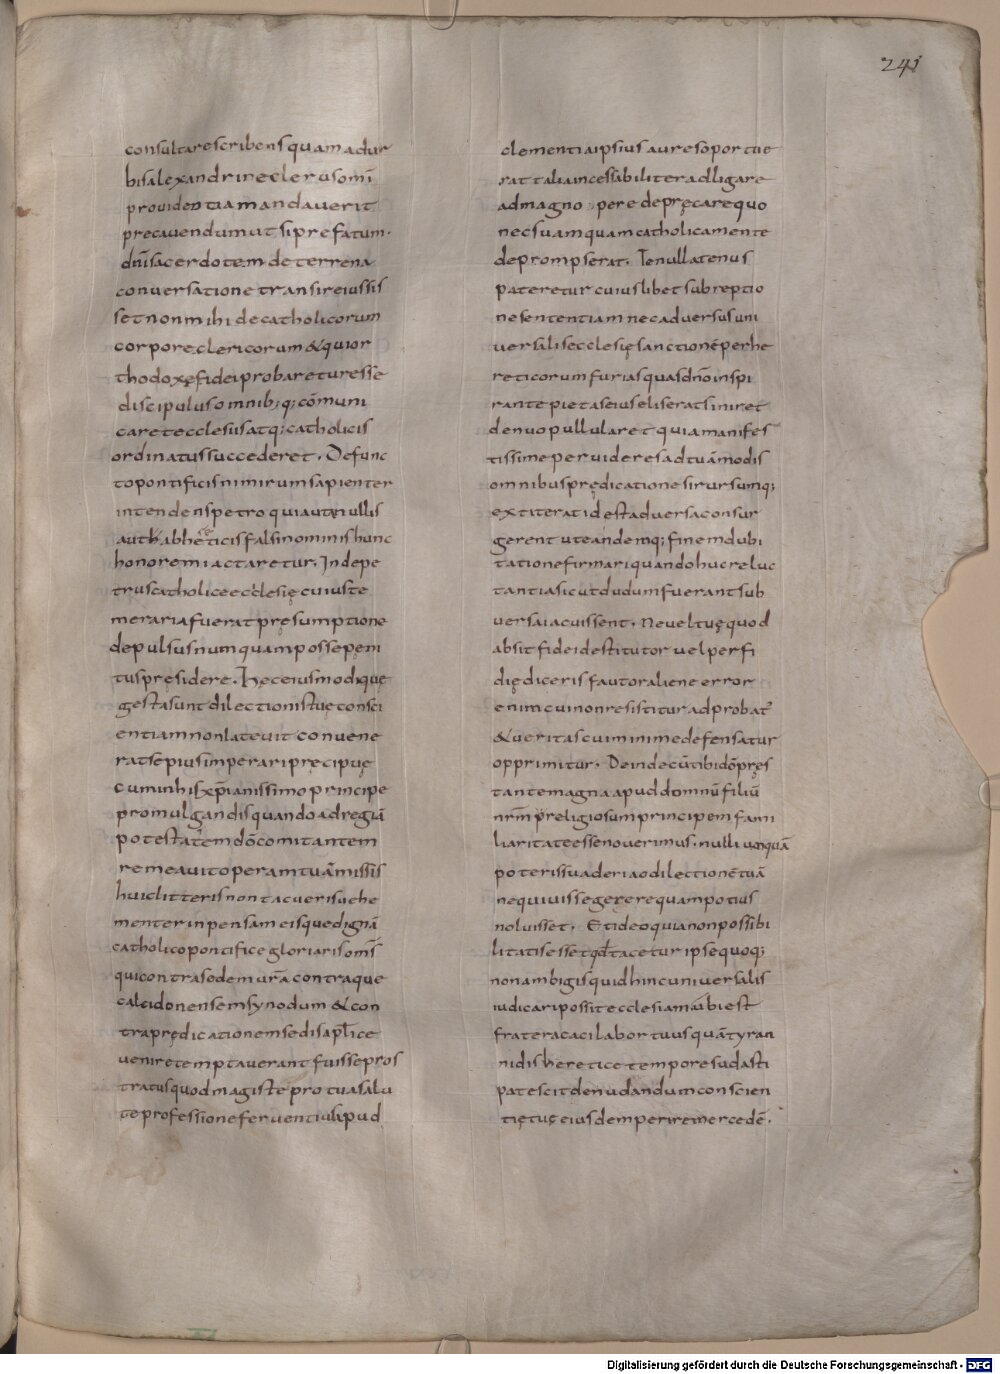 241
consultarescribensquamadur
bisalexandrineclerusomī
prouidentiamandauerit
precauendumutsiprefatum·
dn̄isacerdotemdeterrena
conuersationetransireiussis
setnonmihidecatholicorum
corporeclericorum&quior
thodoxęfideiprobareturesse
discipulusomnib;q;cōmuni
caretecclesiisatq;catholicis
ordinatussuccederet. Defunc
topontificisnimirumsapienter
intendenspetroquiautnullis
autabhereticisfalsinominishunc
honoremiactaretur. Indepe
truscatholiceecclesięcuiuste
merariafueratpręsumptione
depulsusnumquampossepęni
tuspręsidere. Hęceiusmodiquę
gestasuntdilectionistuęconsci
entiamnonlateuitconuene
ratsepiusimperariprecipuę
cuminhisxp̄ianissimoprincipe
promulgandisquandoadregiā
potestatemdōcomitantem
remeauitoperamtuāmissis
huiclitterisnontacuerisuehe
menterinpensameisquedignā
catholicopontificegloriarisom̄s
quicontrasedemur̄acontraque
calcidonensemsynodum&con
trapredicationemsedisapl̄ice
uenireteMptauerantfuissepros
tratusquodmagistepro tuasalu
teprofessioneferuentiusapud
clementiaipsiusauresoportue
rattaliaincessabiliteradligare
admagno pere deprecarequo
necsuamquamcatholicamente
deprompserat. Tenullatenus
patereturcuiuslibetsubreptio
nesententiamnecaduersusuni
uersalisecclesięsanctionēperhe
reticorumfuriasquasdn̄oinspi
rantepietaseiuseliseratsiniret
denuopullularetquiamanifes
tissimeperuideresadtuāmodis
omnibuspredicationesirursumq;
extiteratidestaduersaconsur
gerentuteandemq;finemdubi
tationefirmariquandohucreluc
tantiasicutdudumfuerantsub
uersaiacuissent. Neueltuęquod
absitfideidestitutoruelperfi
diędicerisfautoralieneerror
enimcuinonresistituradprobat̄
&ueritascuiminimedefensatur
opprimitur. Deindecūtibidōpręs
tantemagnaapuddomnūfiliū
nr̄mpreligiosumprincipemfami
liaritateessenouerimus. nulliumquā
poterissuaderiaodilectionētuā
nequiuissegererequampotius
noluisset. Etideoquianonpossibi
litatisessetqd̄taceturipsequoq;
nonambigisquidhincuniuersalis
iudicaripossitecclesiamubiest
frateracacilabortuusquātyran
nidishereticetemporesudasti
patescitdenudandumconscien
tiętuęeiusdemperiremercedē.
Digitalisierung gefördert durch die Deutsche Forschungsgemeinschaft - DFG